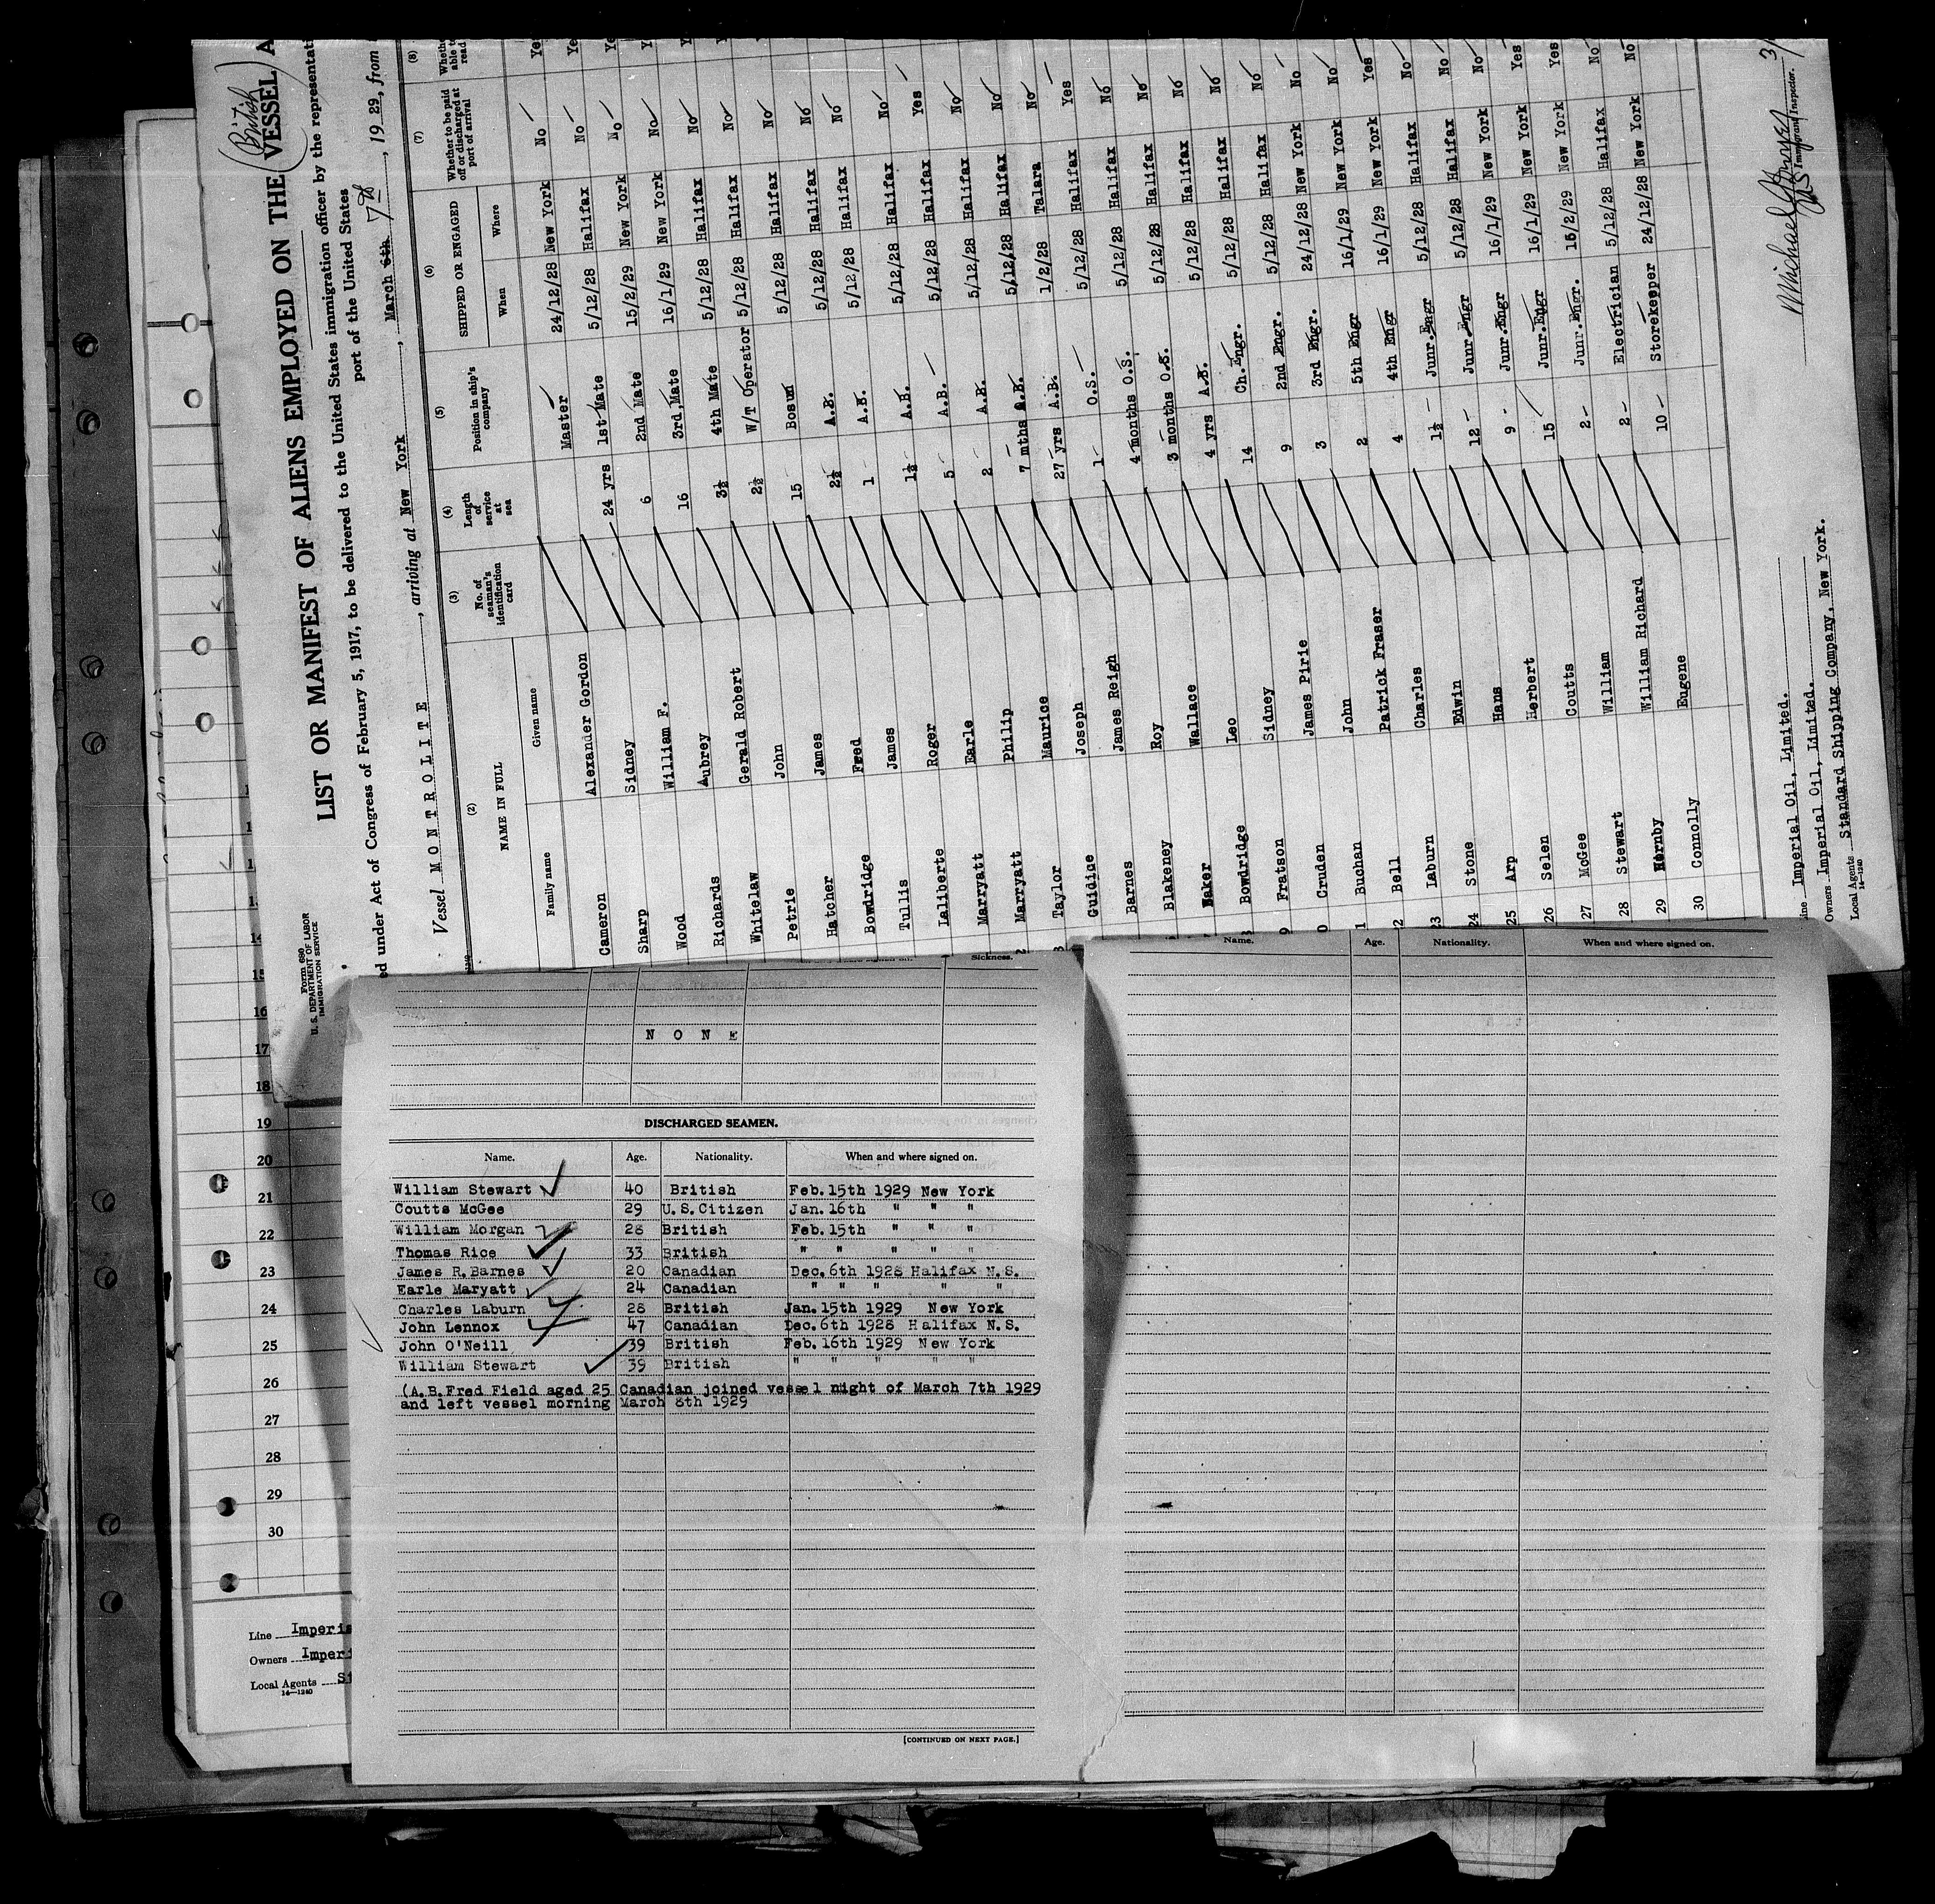 (British)
LIST OR MANIFEST OF ALIENS EMPLOYED ON THE VESSEL A
Form 680
U. S. DEPARTMENT OF LABOR
IMMIGRATION SERVICE
ed under Act of Congress of February 5, 1917, to be delivered to the United States immigration officer by the representati
port of the United States
Vessel MONTROLITE, arriving at New York, March 6th 7th, 1929, from
(2) (3) (4) (5) (6) (7) (8)
NAME IN FULL No. of seaman's identification card Length of service at sea Position in ship's company SHIPPED OR ENGAGED Whether to be paid off or discharged at port of arrival Whethe able to read
Family name Given name When Where
Cameron Alexander Gordon Master 24/12/28 New York No Ye
Sharp Sidney 24 yrs 1st Mate 5/12/28 Halifax No Ye
Wood William F. 6 2nd Mate 15/2/29 New York No Ye
Richards Aubrey 16 3rd Mate 16/1/29 New York No
Whitelaw Gerald Robert 3½ 4th Mate 5/12/28 Halifax No
Petrie John 2½ W/T Operator 5/12/28 Halifax No
Hatcher James 15 Bosun 5/12/28 Halifax No
Bowdridge Fred 2½ A.B. 5/12/28 Halifax No
Tullis James 1 A.B. 5/12/28 Halifax No
Laliberte Roger 1½ A.B. 5/12/28 Halifax No
Marryatt Earle 5 A.B. 5/12/28 Halifax Yes
Marryatt Philip 2 A.B. 5/12/28 Halifax No
Taylor Maurice 7 mths A.B. 5/12/28 Halifax No
Guidice Joseph 27 yrs A.B. 1/2/28 Talara No
Barnes James Reigh 1 O.S. 5/12/28 Halifax Yes
Blakeney Roy 4 months O.S. 5/12/28 Halifax No
Baker Wallace 3 months O.S. 5/12/28 Halifax No
Bowdridge Leo 4 yrs A.B. 5/12/28 Halifax No
Fratson Sidney 14 Ch.Engr. 5/12/28 Halifax No
Cruden James Pirie 9 2nd Engr. 5/12/28 Halifax No
Buchan John 3 3rd Engr. 24/12/28 New York No
Bell Patrick Fraser 2 5th Engr 16/1/29 New York No
23 Laburn Charles 4 4th Engr 16/1/29 New York Yes
24 Stone Edwin 1½ Junr.Engr 5/12/28 Halifax No
25 Arp Hans 12 Junr.Engr 5/12/28 Halifax No
26 Selen Herbert 9 Junr.Engr 16/1/29 New York No
27 McGee Coutts 15 Junr.Engr 16/1/29 New York Yes
28 Stewart William 2 Junr.Engr. 15/2/29 New York Yes
29 Hornby William Richard 2 Electrician 5/12/28 Halifax No
30 Connolly Eugene 10 Storekeeper 24/12/28 New York No
ine Imperial Oil, Limited.
Owners Imperial Oil, Limited.
Local Agents Standard Shipping Company, New York.
14—1240
Immigrant Inspector.
14
16
17
18
19
20
21
22
23
24
25
26
27
28
29
30
Line Imperia
Owners Imperi
Local Agents St
14—1240
Sickness.
NONE
DISCHARGED SEAMEN.
Name. Age. Nationality. When and where signed on.
William Stewart 40 British Feb.15th 1929 New York
Coutts McGee 29 U.S.Citizen Jan.16th " " "
William Morgan 28 British Feb.15th " " "
Thomas Rice 33 British " " " " "
James R.Barnes 20 Canadian Dec.6th 1928 Halifax N.S.
Earle Maryatt 24 Canadian " " " " "
Charles Laburn 28 British Jan.15th 1929 New York
John Lennox 47 Canadian Dec.6th 1928 Halifax N.S.
John O'Neill 39 British Feb.16th 1929 New York
William Stewart 39 British " " " " "
(A.B.Fred Field aged 25 Canadian joined vessel night of March 7th 1929
and left vessel morning March 8th 1929
[CONTINUED ON NEXT PAGE.]
Name. Age. Nationality. When and where signed on.